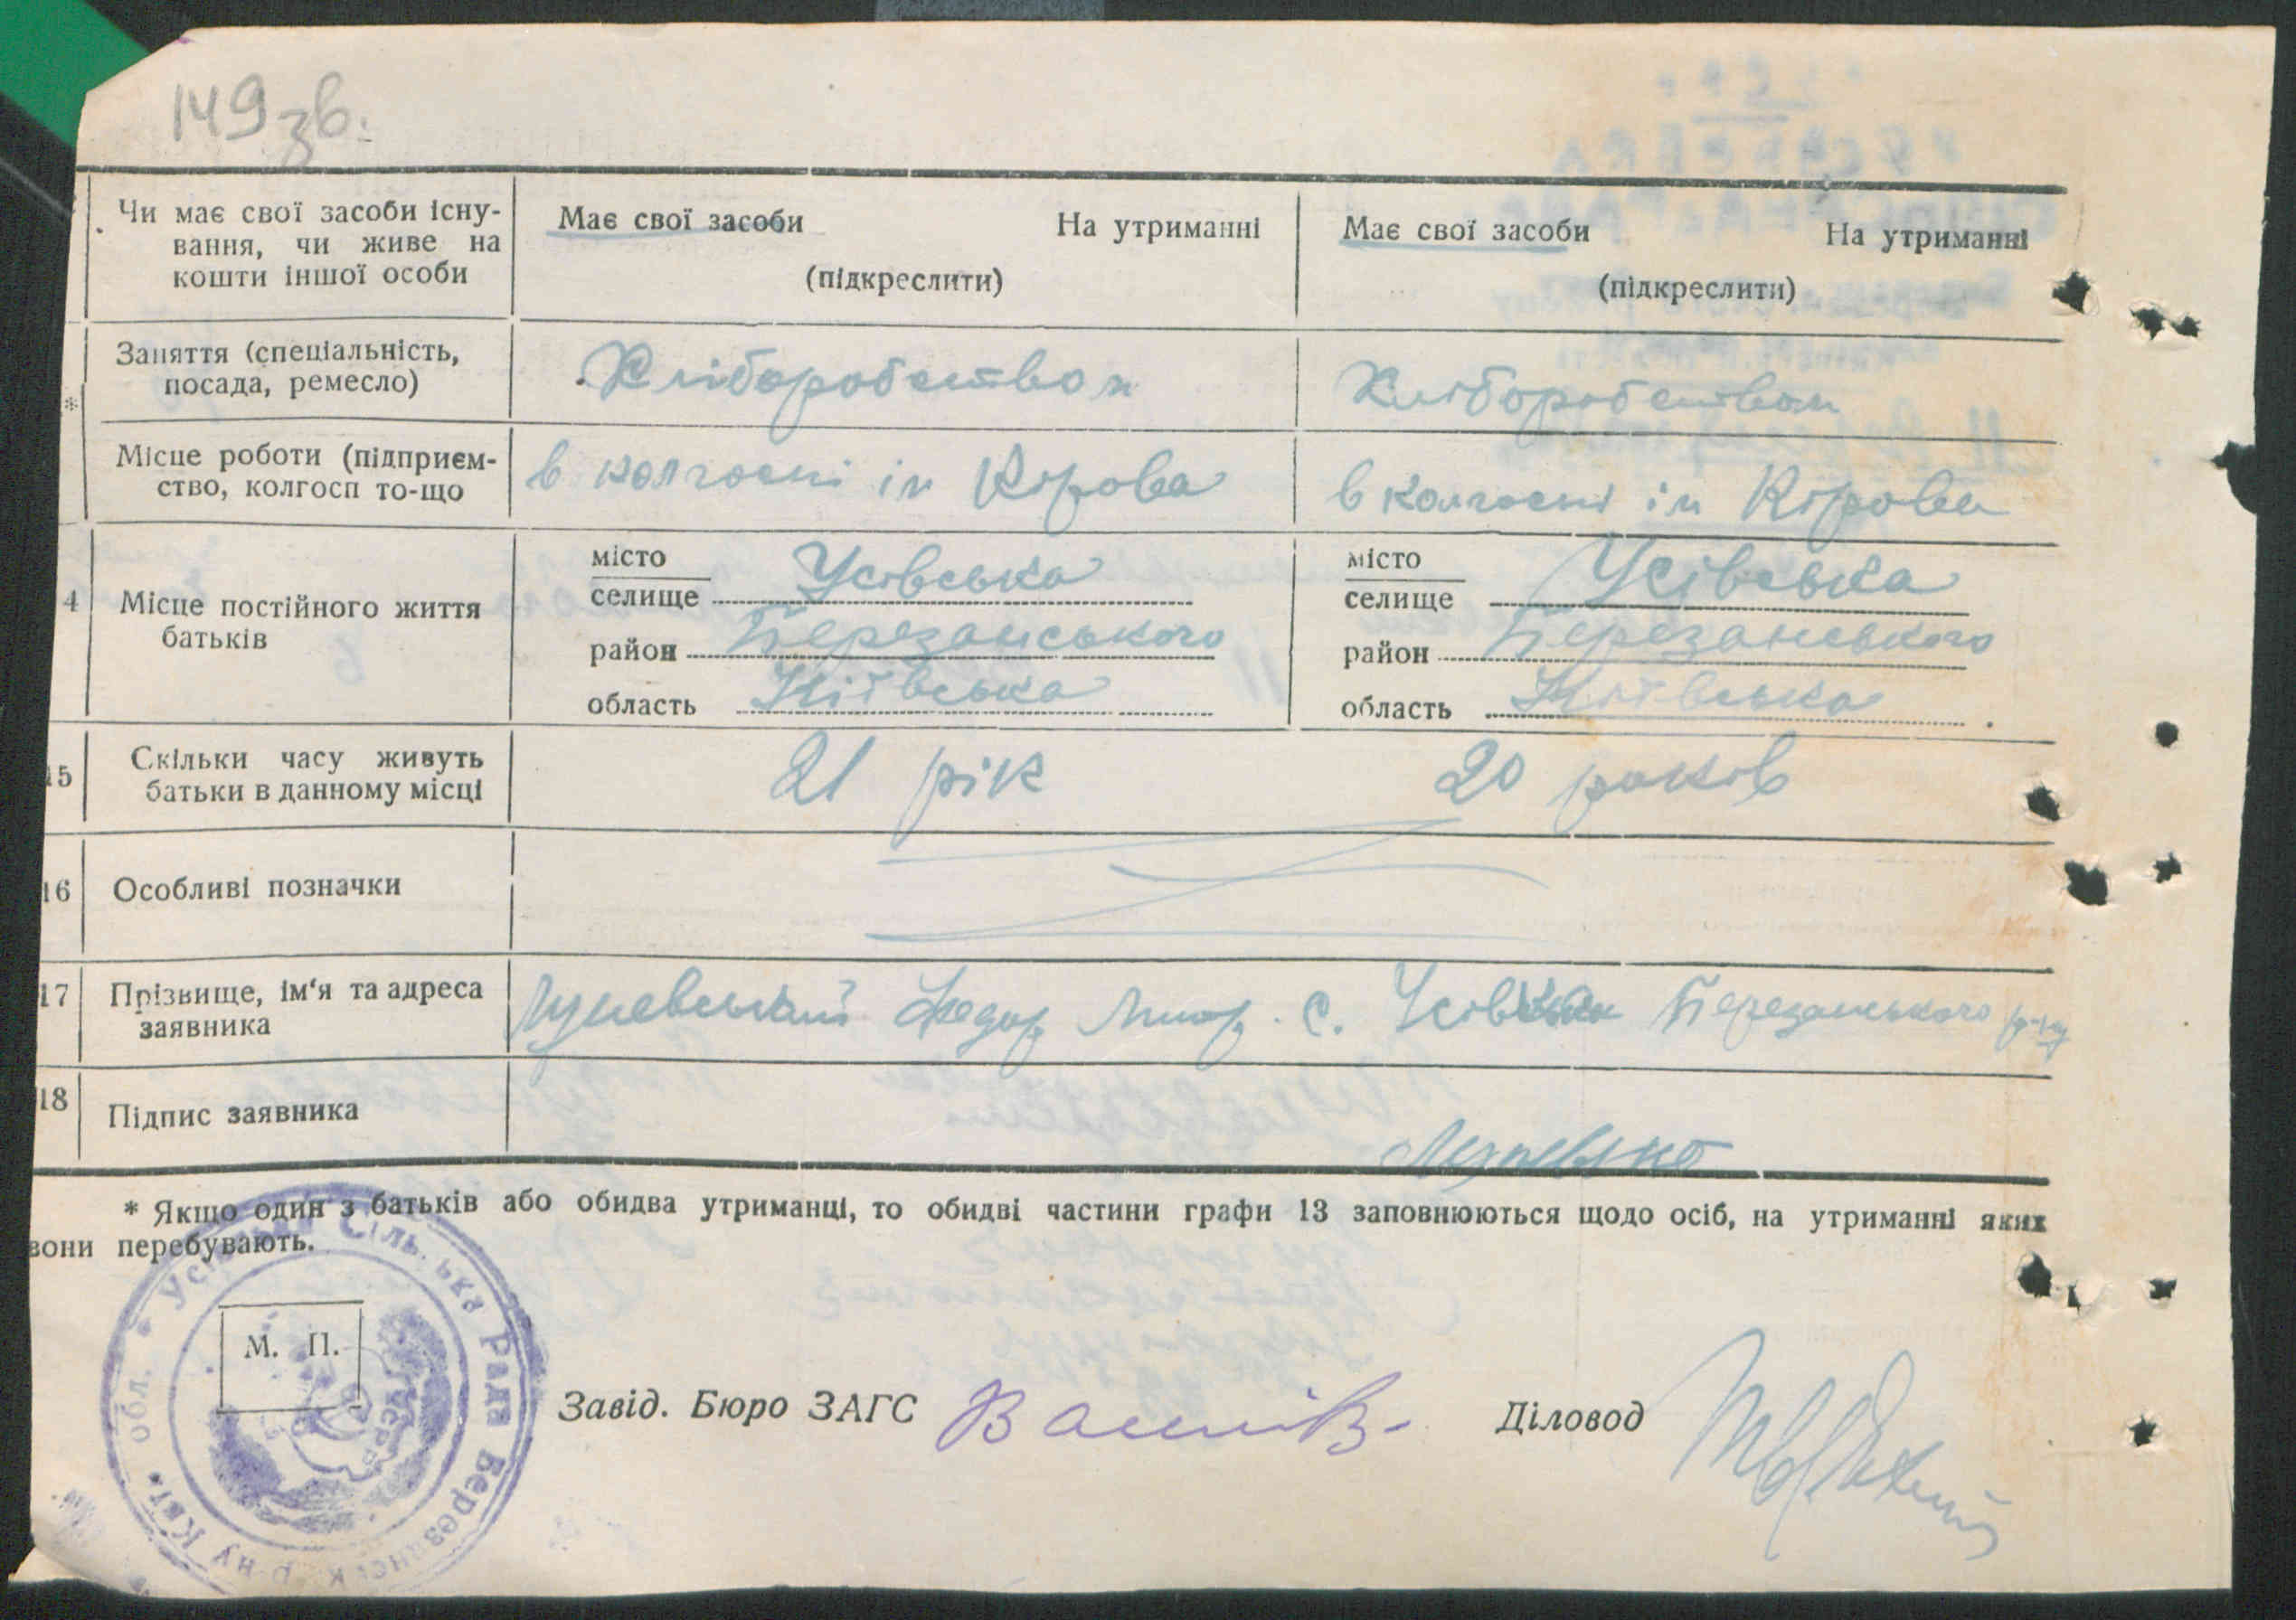 149 зв.
Чи має свої засоби існу-
вання, чи живе на
кошти іншої особи
Має свої засоби На утриманні
(підкреслити)
Має свої засоби На утриманні
(підкреслити)
*
Заняття (спеціальність,
посада, ремесло)
Хліборобством
Хліборобством
Місце роботи (підприєм-
ство, колгосп то-що
в колгоспі ім Кірова
в колгоспі ім Кірова
4
Місце постійного життя
батьків
місто
селище Усівська
район Березанського
область Київська
місто
селище Усівська
район Березанського
область Київська
15
Скільки часу живуть
батьки в данному місці
21 рік
20 років
16
Особливі позначки
17
Прізвище, ім'я та адреса
заявника
Федор с. Березанського р-ну
18
Підпис заявника
* Якщо один з батьків або обидва утриманці, то обидві частини графи 13 заповнюються щодо осіб, на утриманні яких
вони перебувають.
Сільська Рада Березанськ. р-ну Київ. обл.
УСРР
М. П.
Завід. Бюро ЗАГС
Діловод